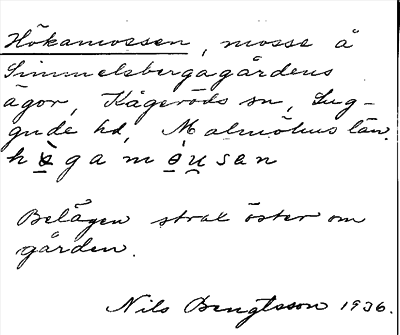 Hökamossen, mosse å
Simmelsbergagårdens
ägor, Kågeröds sn, Lug-
gude hd, Malmöhus län.
Belägen strax öster om
gården.
Nils Bengtsson 1936.